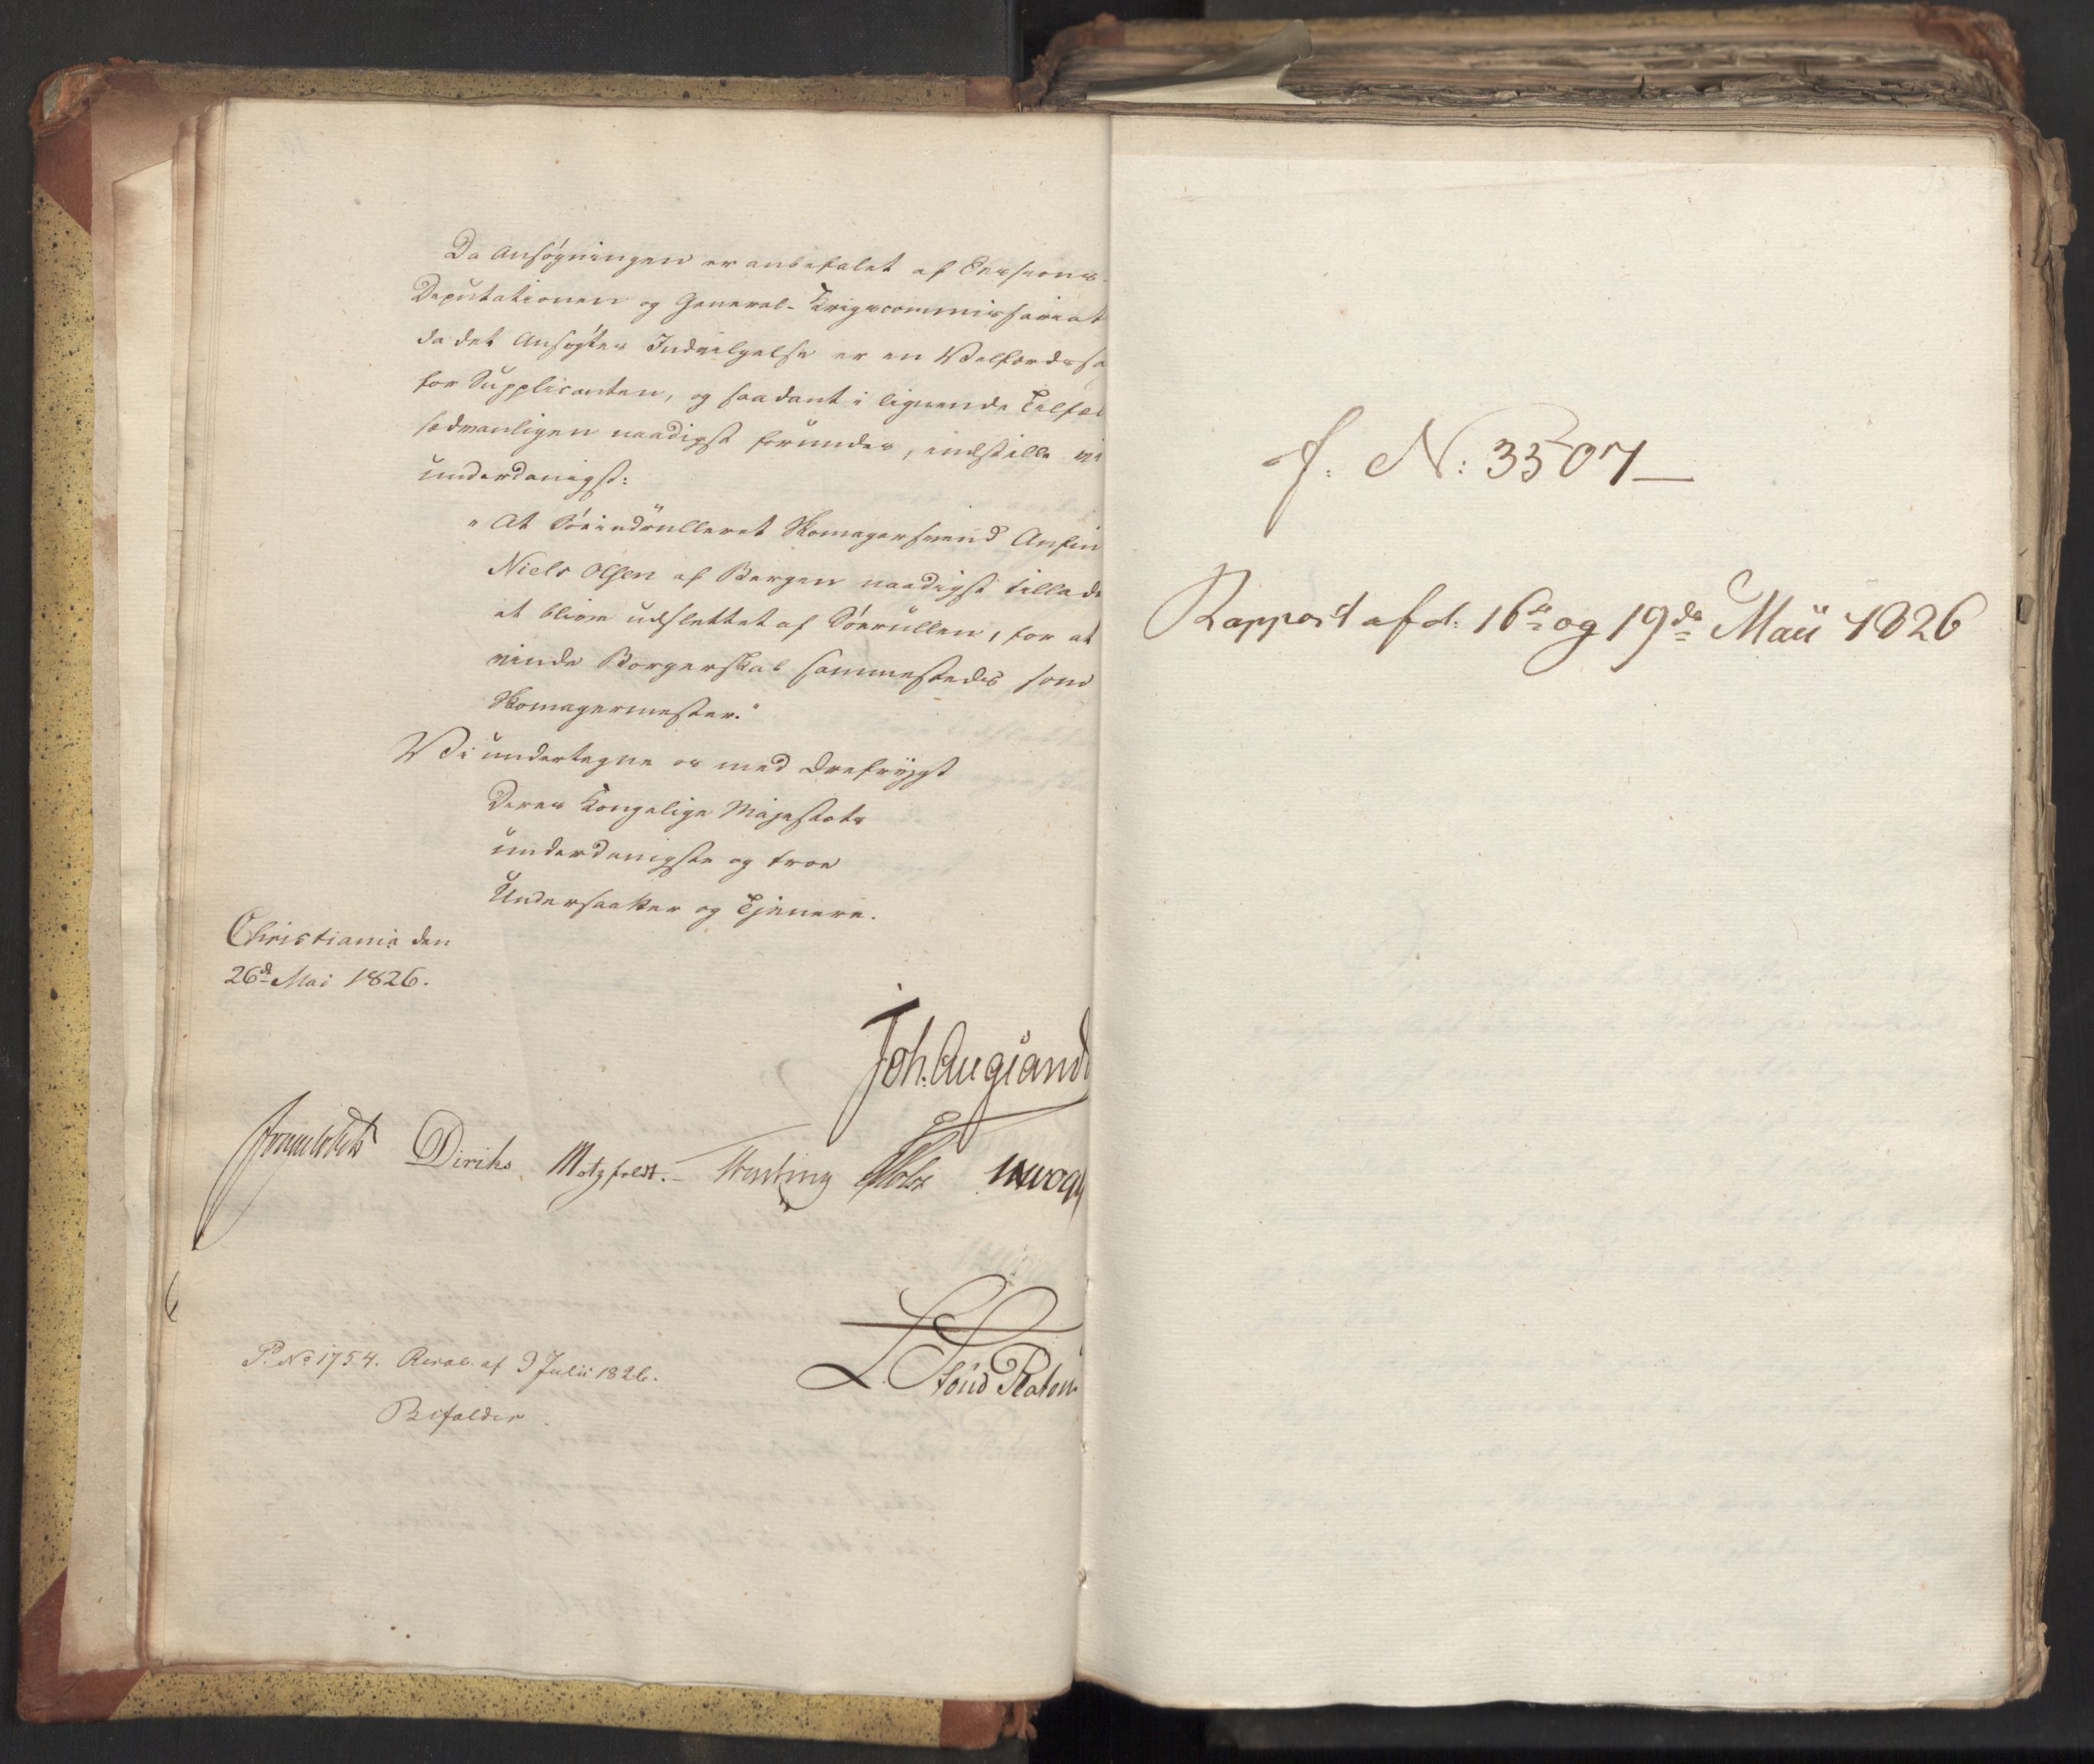 Da Ansøgningen er anbefalet af Sessions-
Deputationen og General-Krigscommissariat
da det Ansøgtes Indvilgelse er en Velfærdssa
for Supplicanten, og saadant i lignende Tilfæl
sædvanligen naadigst forundes, indstille vi
underdanigst:
"At Søeindrulleret Skomagersvend Anfin
Niels Olsen af Bergen naadigst tillade
at blive udslettet af Søerullen, for at
vinde Borgerskab sammesteds som
Skomagermester."
Vi undertegne os med Ærefrygt
Deres Kongelige Majestæts
underdanigste og troe
Undersaatter og Tjenere.
Christiania den
26de Mai 1826.
Joh. Aug Sand
Diriks Motzfeldt. Holst
L. Stoud Platou
P. No 1754. Resol. af 9 Julii 1826.
Bifaldes.
J. N: 3507
Rapport af d: 16de og 19de Maii 1826